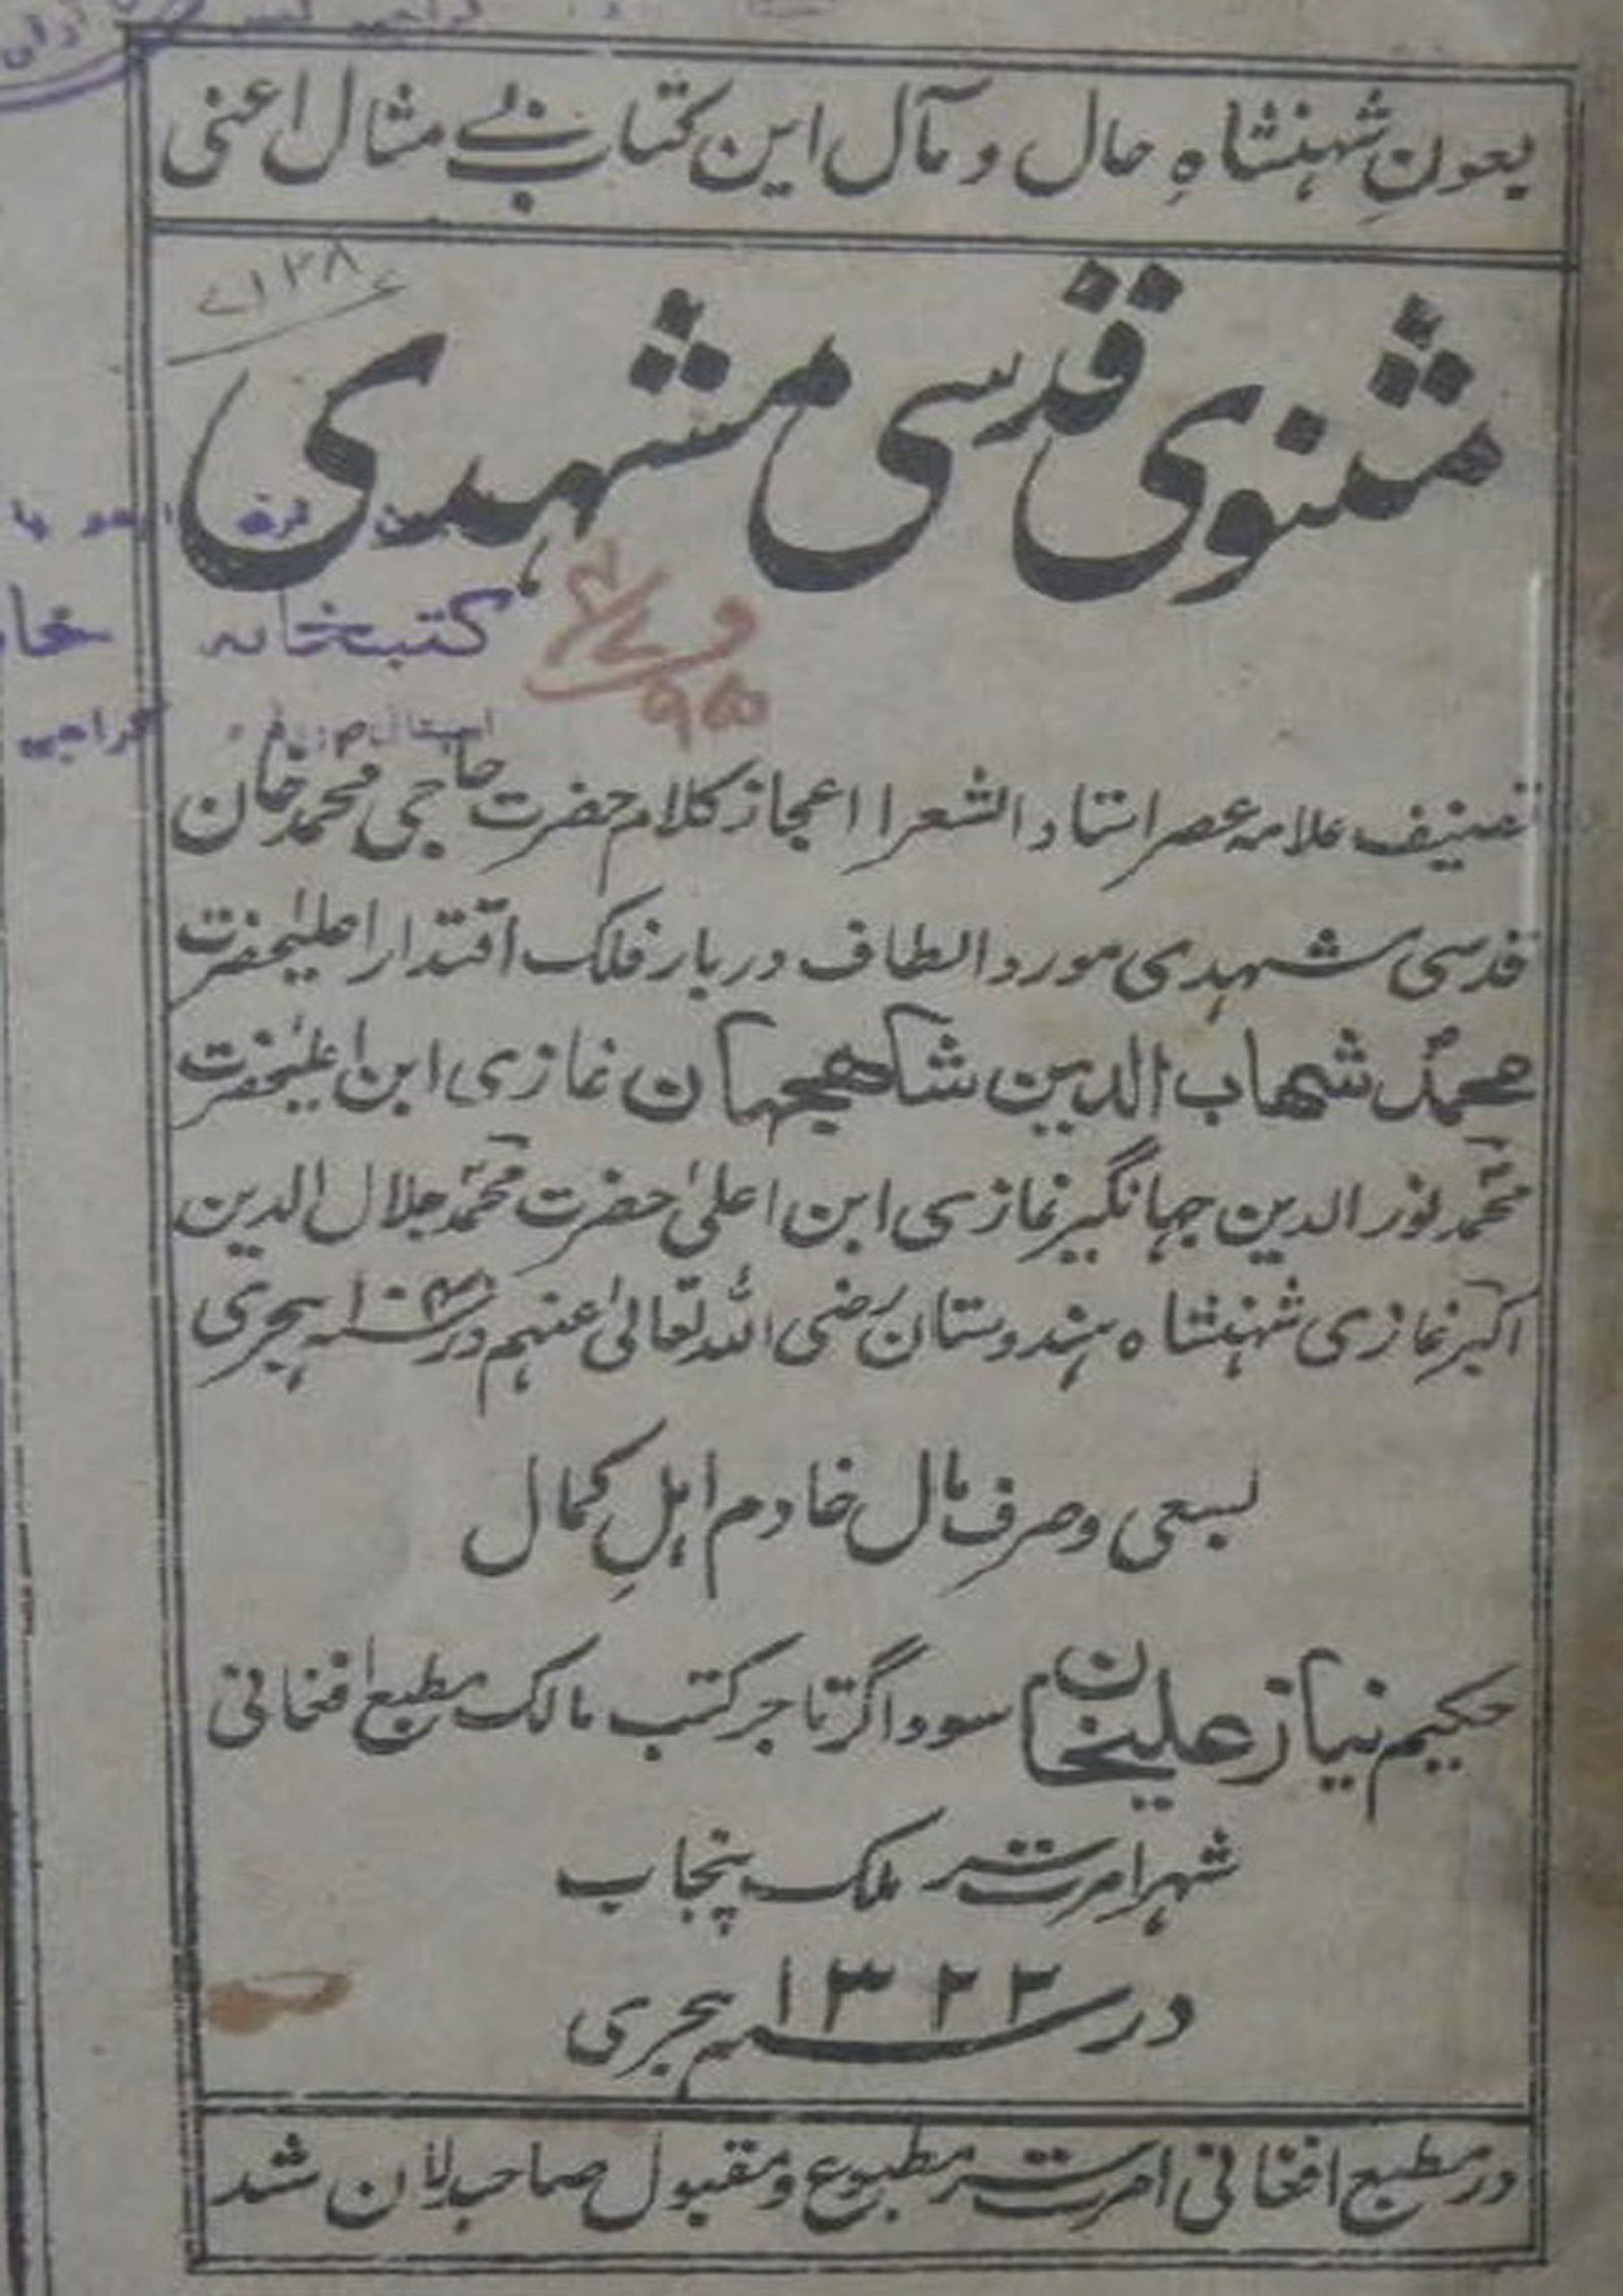 بعونِ شہنشاہِ حال و مآل این کتاب بے مثال اعنی
۱۲۸
مثنوی قدسی مشہدی
کتبخانہ خا
کراچی
تصنیف علامہ عصر استاد الشعرا اعجاز کلام حضرت حاجی محمد خان
قدسی مشہدی مورد الطاف دربار فلک اقتدار اعلیٰحضرت
محمدؐ شھاب الدین شاھجہان غازی ابن اعلیٰحضرت
محمدؐ نور الدین جہانگیر غازی ابن اعلیٰ حضرت محمدؐ جلال الدین
اکبر غازی شہنشاہ ہندوستان رضی اللہ تعالیٰ عنہم در سنہ ہجری
بسعی و صرف مال خادم اہلِ کمال
حکیم نیاز علیخان سوداگر تاجر کتب مالک مطبع افغانی
شہر امرتسر ملک پنجاب
در سنہ ۱۳۲۲ ہجری
در مطبع افغانی امرتسر مطبوع و مقبول صاحبدلان شد